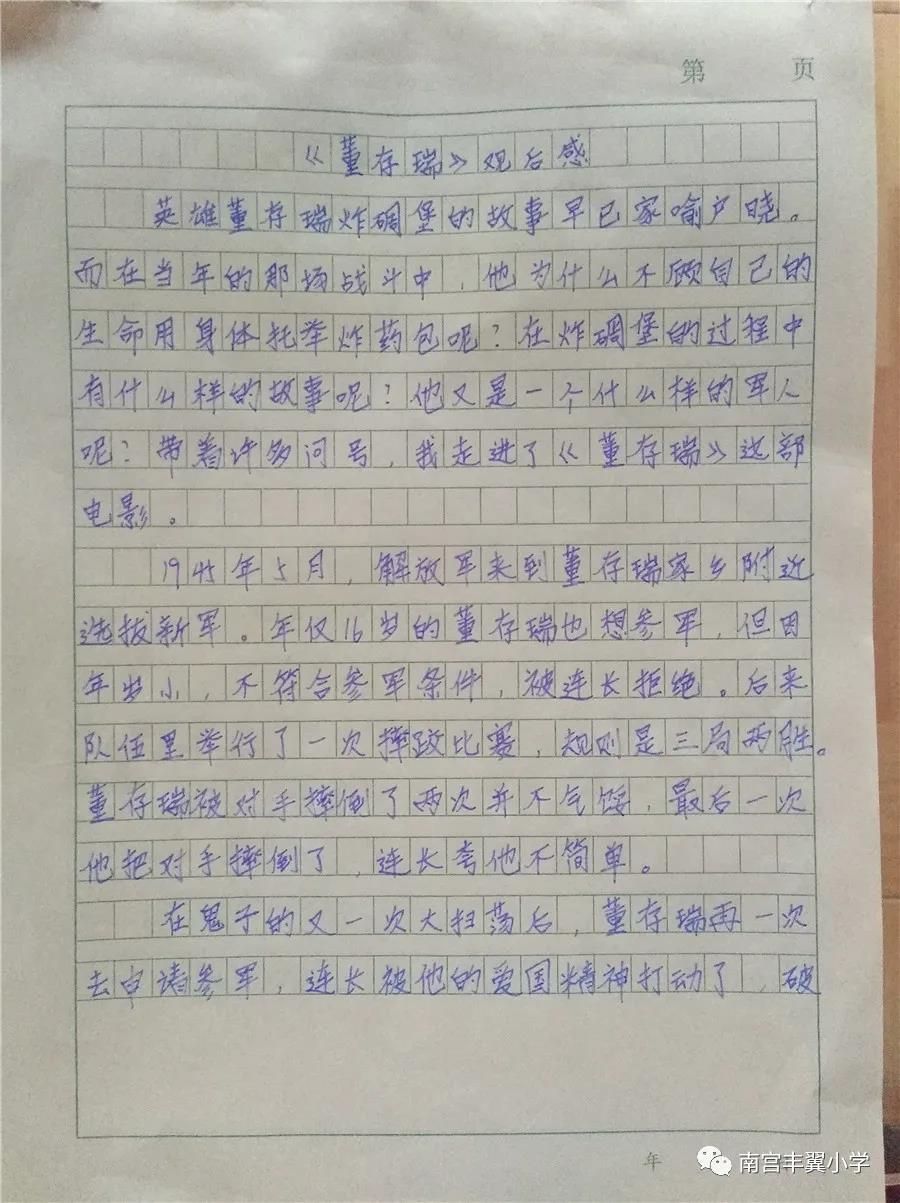 第 页
《董存瑞》观后感
英雄董存瑞炸碉堡的故事早已家喻户晓。
而在当年的那场战斗中，他为什么不顾自己的
生命用身体托举炸药包呢？在炸碉堡的过程中
有什么样的故事呢？他又是一个什么样的军人
呢？带着许多问号，我走进了《董存瑞》这部
电影。
1945年5月，解放军来到董存瑞家乡附近
选拔新军。年仅16岁的董存瑞也想参军，但因
年岁小，不符合参军条件，被连长拒绝。后来
队伍里举行了一次摔跤比赛，规则是三局两胜。
董存瑞被对手摔倒了两次并不气馁，最后一次
他把对手摔倒了，连长夸他不简单。
在鬼子的又一次大扫荡后，董存瑞再一次
去申请参军，连长被他的爱国精神打动了，破
年
南宫丰翼小学